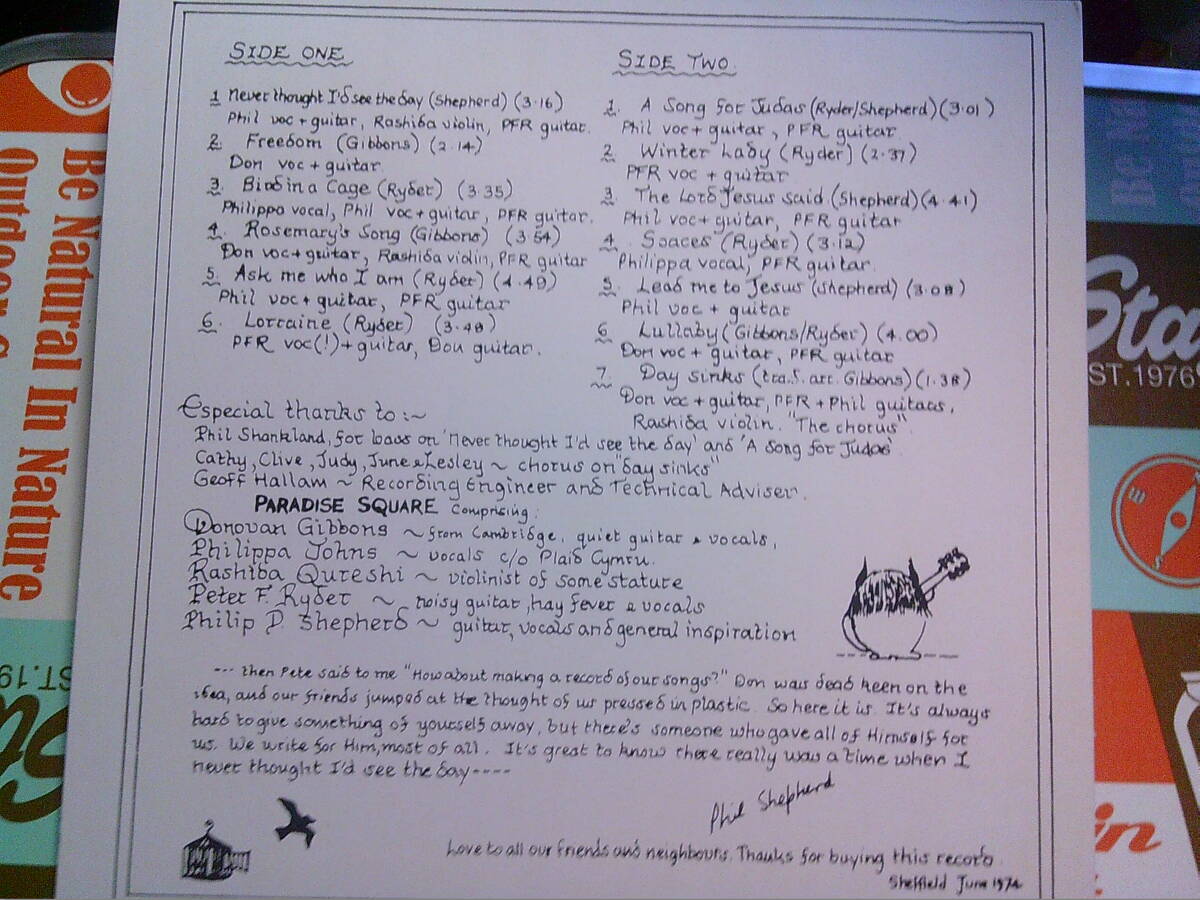 SIDE ONE
1 Never thought I'd see the day (Shepherd) (3.16)
Phil voc + guitar, Rashida violin, PFR guitar.
2. Freedom (Gibbons) (2.14)
Don voc + guitar.
3. Bird in a Cage (Ryder) (3.35)
Philippa vocal, Phil voc + guitar, PFR guitar.
4. Rosemary's Song (Gibbons) (3.54)
Don voc + guitar, Rashida violin, PFR guitar
5. Ask me who I am (Ryder) (4.49)
Phil voc + guitar, PFR guitar
6. Lorraine (Ryder) (3.48)
PFR voc(!) + guitar, Don guitar.
SIDE TWO
1. A Song for Judas (Ryder/Shepherd) (3.01)
Phil voc + guitar, PFR guitar
2. Winter Lady (Ryder) (2.37)
PFR voc + guitar
3. The Lord Jesus said (Shepherd) (4.41)
Phil voc + guitar, PFR guitar
4. Spaces (Ryder) (3.12)
Philippa vocal, PFR guitar.
5. Lead me to Jesus (Shepherd) (3.08)
Phil voc + guitar
6. Lullaby (Gibbons/Ryder) (4.00)
Don voc + guitar, PFR guitar
7. Day sinks (trad. arr. Gibbons) (1.38)
Don voc + guitar, PFR + Phil guitars,
Rashida violin. "The chorus"
Especial thanks to :~
Phil Shankland, for bass on 'Never thought I'd see the day' and 'A Song for Judas'
Cathy, Clive, Judy, June & Lesley ~ chorus on "day sinks"
Geoff Hallam ~ Recording Engineer and Technical Adviser.
PARADISE SQUARE Comprising:
Donovan Gibbons ~ from Cambridge, quiet guitar & vocals,
Philippa Johns ~ vocals c/o Plaid Cymru.
Rashida Qureshi ~ violinist of some stature
Peter F. Ryder ~ noisy guitar, hay fever & vocals
Philip D. Shepherd ~ guitar, vocals and general inspiration
--- then Pete said to me "How about making a record of our songs?" Don was dead keen on the
idea, and our friends jumped at the thought of us pressed in plastic. So here it is. It's always
hard to give something of yourself away, but there's someone who gave all of Himself for
us. We write for Him, most of all. It's great to know there really was a time when I
never thought I'd see the day ----
Phil Shepherd
Love to all our friends and neighbours. Thanks for buying this record
Sheffield June 1974
Be Natural In Nature
EST. 1976